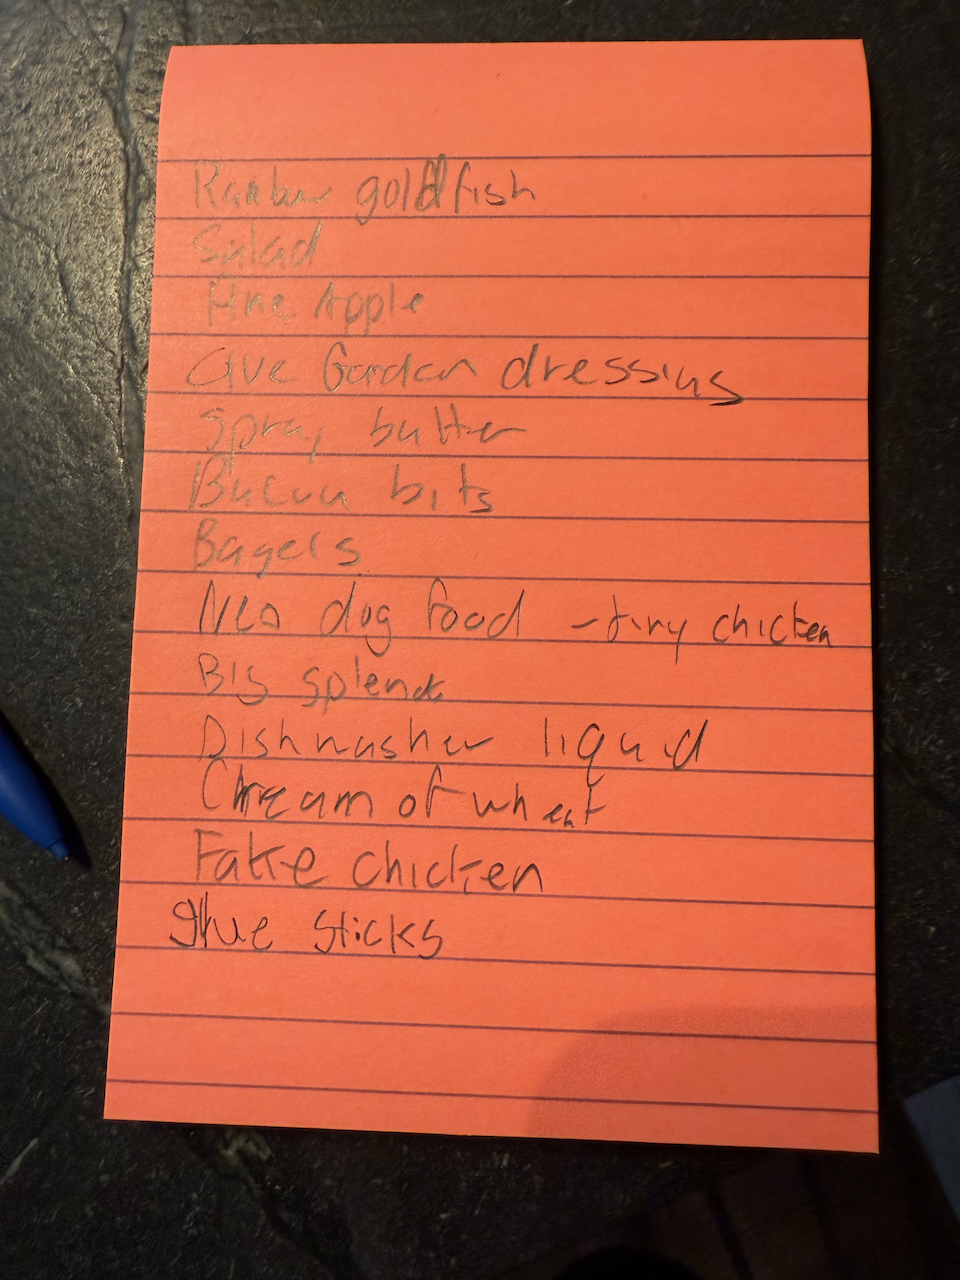 Rainbow goldfish
Salad
Pine Apple
Olive Garden dressing
Spray butter
Bacon bits
Bagels
Neo dog food - tiny chicken
Big splenda
Dishwasher liquid
Cream of wheat
Fake chicken
glue sticks